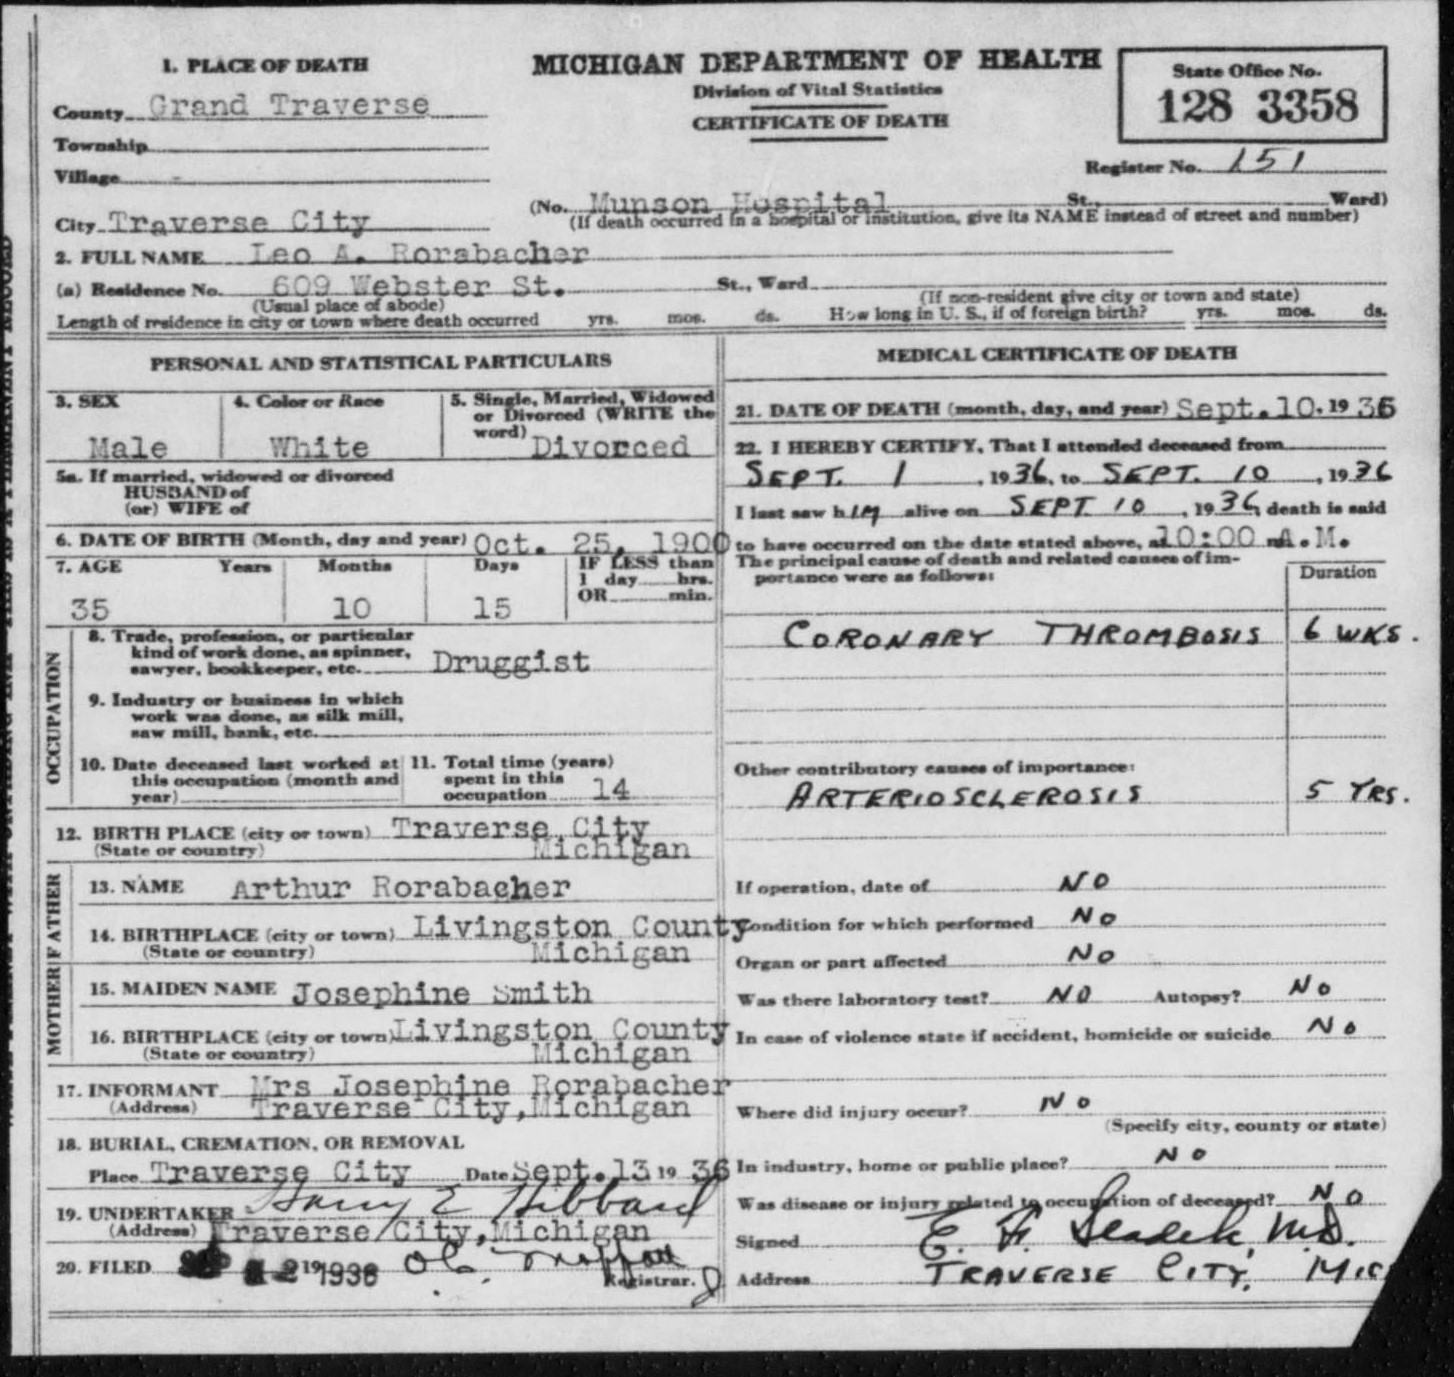 1. PLACE OF DEATH
County Grand Traverse
Township
Village -
City Traverse City
MICHIGAN DEPARTMENT OF HEALTH
Division of Vital Statistics
CERTIFICATE OF DEATH
State Office No.
128 3358
Register No. 151
(No. Munson Hospital St., Ward)
(If death occurred in a hospital or institution, give its NAME instead of street and number)
2. FULL NAME Leo A. Rorabacher
(a) Residence No. 609 Webster St. St., Ward
(Usual place of abode) (If non-resident give city or town and state)
Length of residence in city or town where death occurred yrs. mos. ds. How long in U. S., if of foreign birth? yrs. mos. ds.
PERSONAL AND STATISTICAL PARTICULARS
3. SEX
Male
4. Color or Race
White
5. Single, Married, Widowed
or Divorced (WRITE the
word) Divorced
5a. If married, widowed or divorced
HUSBAND of
(or) WIFE of
6. DATE OF BIRTH (Month, day and year) Oct. 25, 1900
7. AGE Years Months Days IF LESS than
1 day hrs.
OR min.
35 10 15
OCCUPATION
8. Trade, profession, or particular
kind of work done, as spinner,
sawyer, bookkeeper, etc. Druggist
9. Industry or business in which
work was done, as silk mill,
saw mill, bank, etc.
10. Date deceased last worked at
this occupation (month and
year)
11. Total time (years)
spent in this
occupation 14
12. BIRTH PLACE (city or town) Traverse City
(State or country) Michigan
FATHER
13. NAME Arthur Rorabacher
14. BIRTHPLACE (city or town) Livingston County
(State or country) Michigan
MOTHER
15. MAIDEN NAME Josephine Smith
16. BIRTHPLACE (city or town) Livingston County
(State or country) Michigan
17. INFORMANT Mrs Josephine Rorabacher
(Address) Traverse City, Michigan
18. BURIAL, CREMATION, OR REMOVAL
Place Traverse City Date Sept. 13 19 36
19. UNDERTAKER Harry E Hibbard
(Address) Traverse City, Michigan
20. FILED 1936
Registrar.
MEDICAL CERTIFICATE OF DEATH
21. DATE OF DEATH (month, day, and year) Sept. 10. 19 36
22. I HEREBY CERTIFY, That I attended deceased from
SEPT. 1, 1936, to SEPT. 10, 1936
I last saw h IM alive on SEPT 10, 1936, death is said
to have occurred on the date stated above, at 10:00 m. A.M.
The principal cause of death and related causes of im-
portance were as follows:
Duration
CORONARY THROMBOSIS 6 WKS.
Other contributory causes of importance:
ARTERIOSCLEROSIS 5 YRS.
If operation, date of NO
Condition for which performed NO
Organ or part affected NO
Was there laboratory test? NO Autopsy? NO
In case of violence state if accident, homicide or suicide NO
Where did injury occur? NO
(Specify city, county or state)
In industry, home or public place? NO
Was disease or injury related to occupation of deceased? NO
Signed E. F. Sladek, M.D.
Address TRAVERSE CITY,